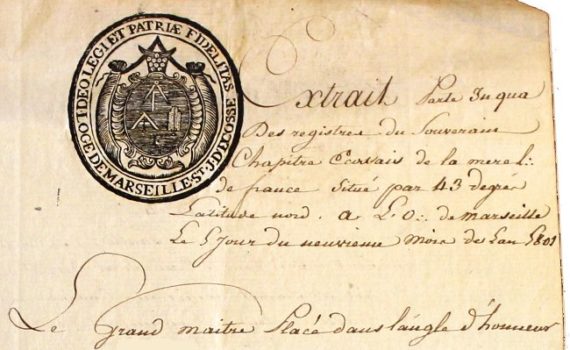 DEO LEGI ET PATRIÆ FIDELITAS
DE MARSEILLE ST. J. D'ECOSSE
Extrait Parte In qua
Des registres du Souverain
Chapitre Ecossais de la mere L∴
de france Situé par 43 degrés
Latitude nord. a L'O∴ de marseille
Le 5 Jour du neuvieme Mois de Lan 5801
Le Grand maitre Placé dans l'angle d'honneur